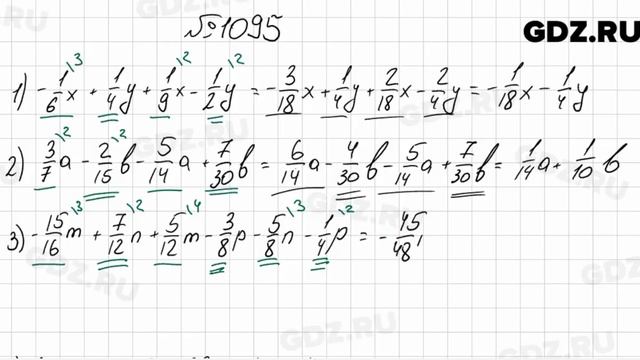 №1095
GDZ.RU
1) -1/6x\3 + 1/4y + 1/9x\2 - 1/2y\2 = -3/18x + 1/4y + 2/18x - 2/4y = -1/18x - 1/4y
2) 3/7a\2 - 2/15b\2 - 5/14a + 7/30b = 6/14a - 4/30b - 5/14a + 7/30b = 1/14a + 1/10b
3) -15/16m\3 + 7/12n\2 + 5/12m\4 - 3/8p - 5/8n\3 - 1/4p\2 = -45/48